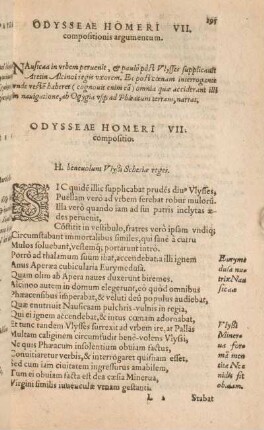 195
ODYSSEAE HOMERI VII.
compositionis argumentum.
NAusicaa in vrbem peruenit, & paulò pòst Vlysses supplicauit
Areten Alcinoi regis vxorem. Et post cœnam interroganti
vnde vestē haberet (cognouit enim eā) omnia quæ acciderant illi
in nauigatione, ab Ogygia vsq; ad Phæacum terram, narrat.
ODYSSEAE HOMERI VII.
compositio.
H. beneuolum Vlyssi Scheriæ reges.
SIC quidē illic supplicabat prudēs diuꝰ Vlysses,
Puellam verò ad vrbem ferebat robur mulorū.
Illa verò quando iam ad sui patris inclytas ædes peruenit,
Cōstitit in vestibulo, fratres verò ipsam vndiq;
Circumstabant immortalibus similes, qui sanè à curru
Mulos soluebant, vestemq; portarunt intrò.
Porrò ad thalamum suum ibat, accendebat illi ignem
Anus Aperæa cubicularia Eurymedusa.
Quam olim ab Apera naues duxerunt biremes,
Alcinoo autem in domum elegerunt, eò quòd omnibus
Phæacensibus imperabat, & veluti deū populus audiebat,
Quæ enutriuit Nausicaam pulchris-vulnis in regia,
Quæ ei ignem accendebat, & intus cœnam adornabat,
Et tunc tandem Vlysses surrexit ad vrbem ire, at Pallas
Multam caliginem circumfudit beneuolens Vlyssi,
Ne quis Phæacum insolentium obuiam factus,
Conuitiaretur verbis, & interrogaret quisnam esset,
Sed cum iam ciuitatem ingressurus amabilem,
Tum ei obuiam facta est dea cæsia Minerua,
Virgini similis iuuenculæ vrnam gestanti.
Eurymedusa nutrix Nausicaæ
Vlyssi Minerua formā mentitæ Nō nihil fit obuiam.
L 2 Stabat